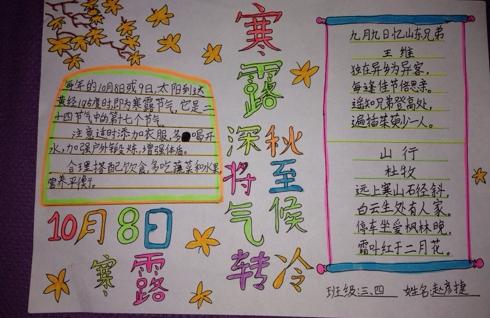 每年的10月8日或9日,太阳到达
黄经195度时,即为寒露节气,它是二
十四节气中的第十七个节气。
注意适时添加衣服,多喝开
水,加强户外锻炼,增强体质。
合理搭配饮食,多吃蔬菜和水果,
营养平衡。
10月8日
寒露
寒露
深秋
将至
气候
转冷
九月九日忆山东兄弟
王维
独在异乡为异客,
每逢佳节倍思亲。
遥知兄弟登高处,
遍插茱萸少一人。
山行
杜牧
远上寒山石径斜,
白云生处有人家。
停车坐爱枫林晚,
霜叶红于二月花。
班级:三、四 姓名:赵彦捷